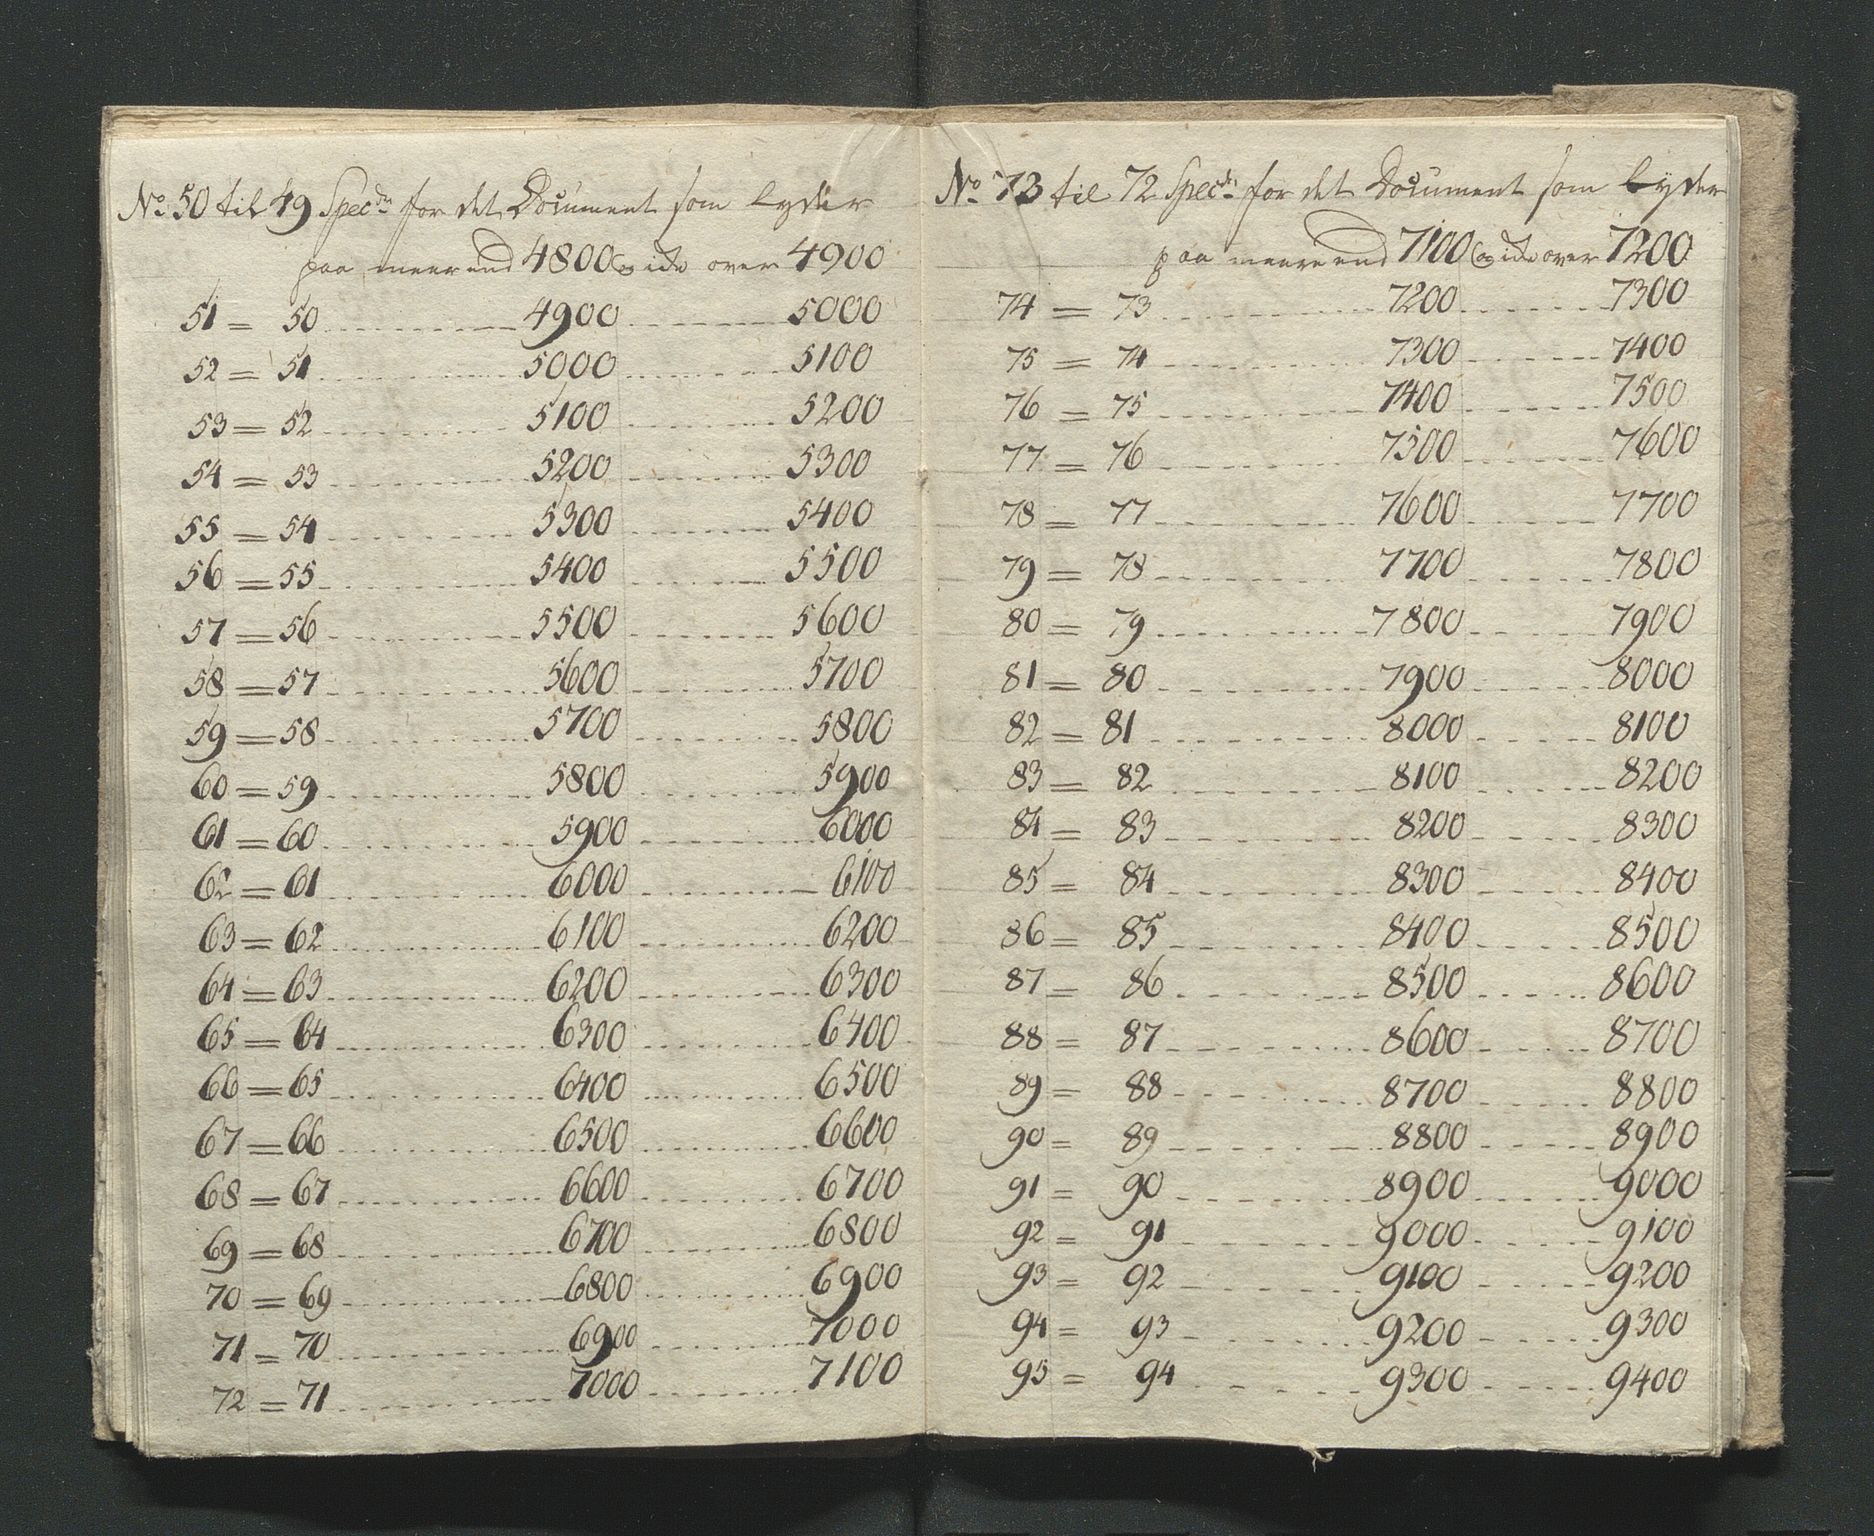 No 50 til 49 Specdr for det Document som lyder
paa meer end 4800 og ikke over 4900
51 = 50 4900 5000
52 = 51 5000 5100
53 = 52 5100 5200
54 = 53 5200 5300
55 = 54 5300 5400
56 = 55 5400 5500
57 = 56 5500 5600
58 = 57 5600 5700
59 = 58 5700 5800
60 = 59 5800 5900
61 = 60 5900 6000
62 = 61 6000 6100
63 = 62 6100 6200
64 = 63 6200 6300
65 = 64 6300 6400
66 = 65 6400 6500
67 = 66 6500 6600
68 = 67 6600 6700
69 = 68 6700 6800
70 = 69 6800 6900
71 = 70 6900 7000
72 = 71 7000 7100
No 73 til 72 Specdr for det Document som lyder
paa meere end 7100 og ikke over 7200
74 = 73 7200 7300
75 = 74 7300 7400
76 = 75 7400 7500
77 = 76 7500 7600
78 = 77 7600 7700
79 = 78 7700 7800
80 = 79 7800 7900
81 = 80 7900 8000
82 = 81 8000 8100
83 = 82 8100 8200
84 = 83 8200 8300
85 = 84 8300 8400
86 = 85 8400 8500
87 = 86 8500 8600
88 = 87 8600 8700
89 = 88 8700 8800
90 = 89 8800 8900
91 = 90 8900 9000
92 = 91 9000 9100
93 = 92 9100 9200
94 = 93 9200 9300
95 = 94 9300 9400